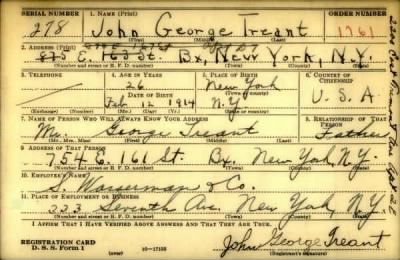 SERIAL NUMBER 1. NAME (Print) ORDER NUMBER
278 John George Treant 1761
(First) (Middle) (Last)
2. ADDRESS (Print)
875 E. 163 St. Bx, New York, N.Y.
(Number and street or R. F. D. number) (Town) (County) (State)
3. TELEPHONE 4. AGE IN YEARS 5. PLACE OF BIRTH 6. COUNTRY OF CITIZENSHIP
26 New York
DATE OF BIRTH (Town or county)
Feb 12 1914 N.Y. U.S.A.
(Exchange) (Number) (Mo.) (Day) (Yr.) (State or country)
7. NAME OF PERSON WHO WILL ALWAYS KNOW YOUR ADDRESS 8. RELATIONSHIP OF THAT PERSON
Mr. George Treant Father
(Mr., Mrs., Miss) (First) (Middle) (Last)
9. ADDRESS OF THAT PERSON
754 E. 161 St. Bx. New York, N.Y.
(Number and street or R. F. D. number) (Town) (County) (State)
10. EMPLOYER'S NAME
S. Wasserman & Co.
11. PLACE OF EMPLOYMENT OR BUSINESS
223 Seventh Ave. New York, N.Y.
(Number and street or R. F. D. number) (Town) (County) (State)
I AFFIRM THAT I HAVE VERIFIED ABOVE ANSWERS AND THAT THEY ARE TRUE.
REGISTRATION CARD
D. S. S. Form 1 (over) 16—17105 John George Treant
(Registrant's signature)